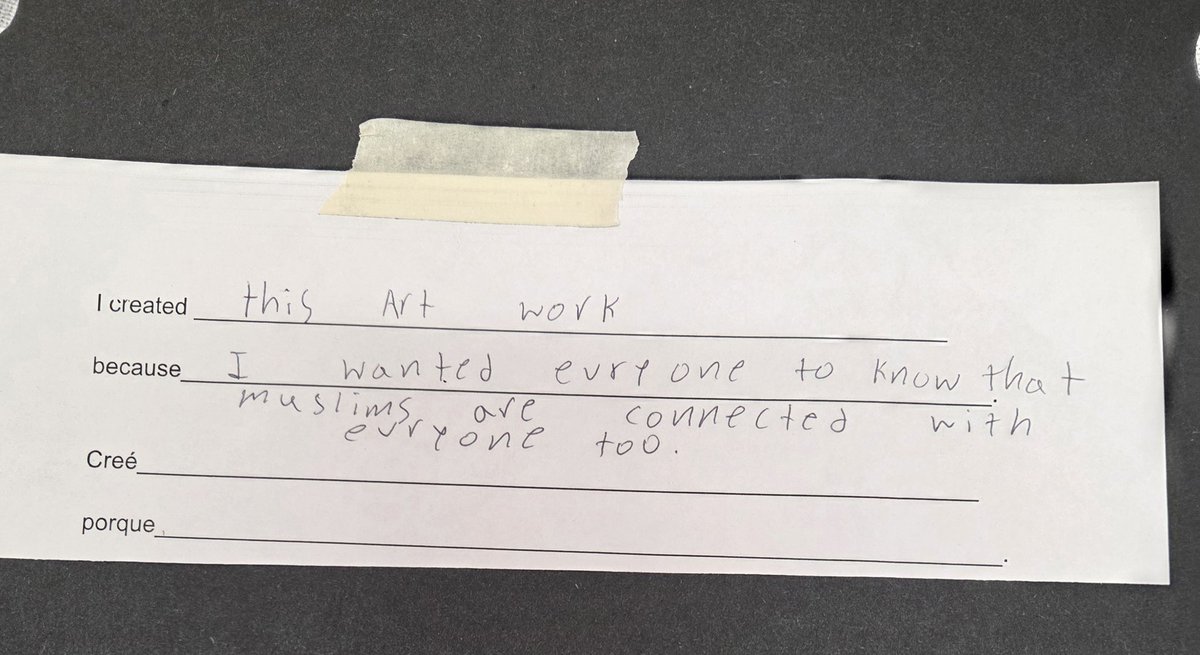 I created this Art work
because I wanted evryone to know that
muslims are connected with
evryone too.
Creé
porque